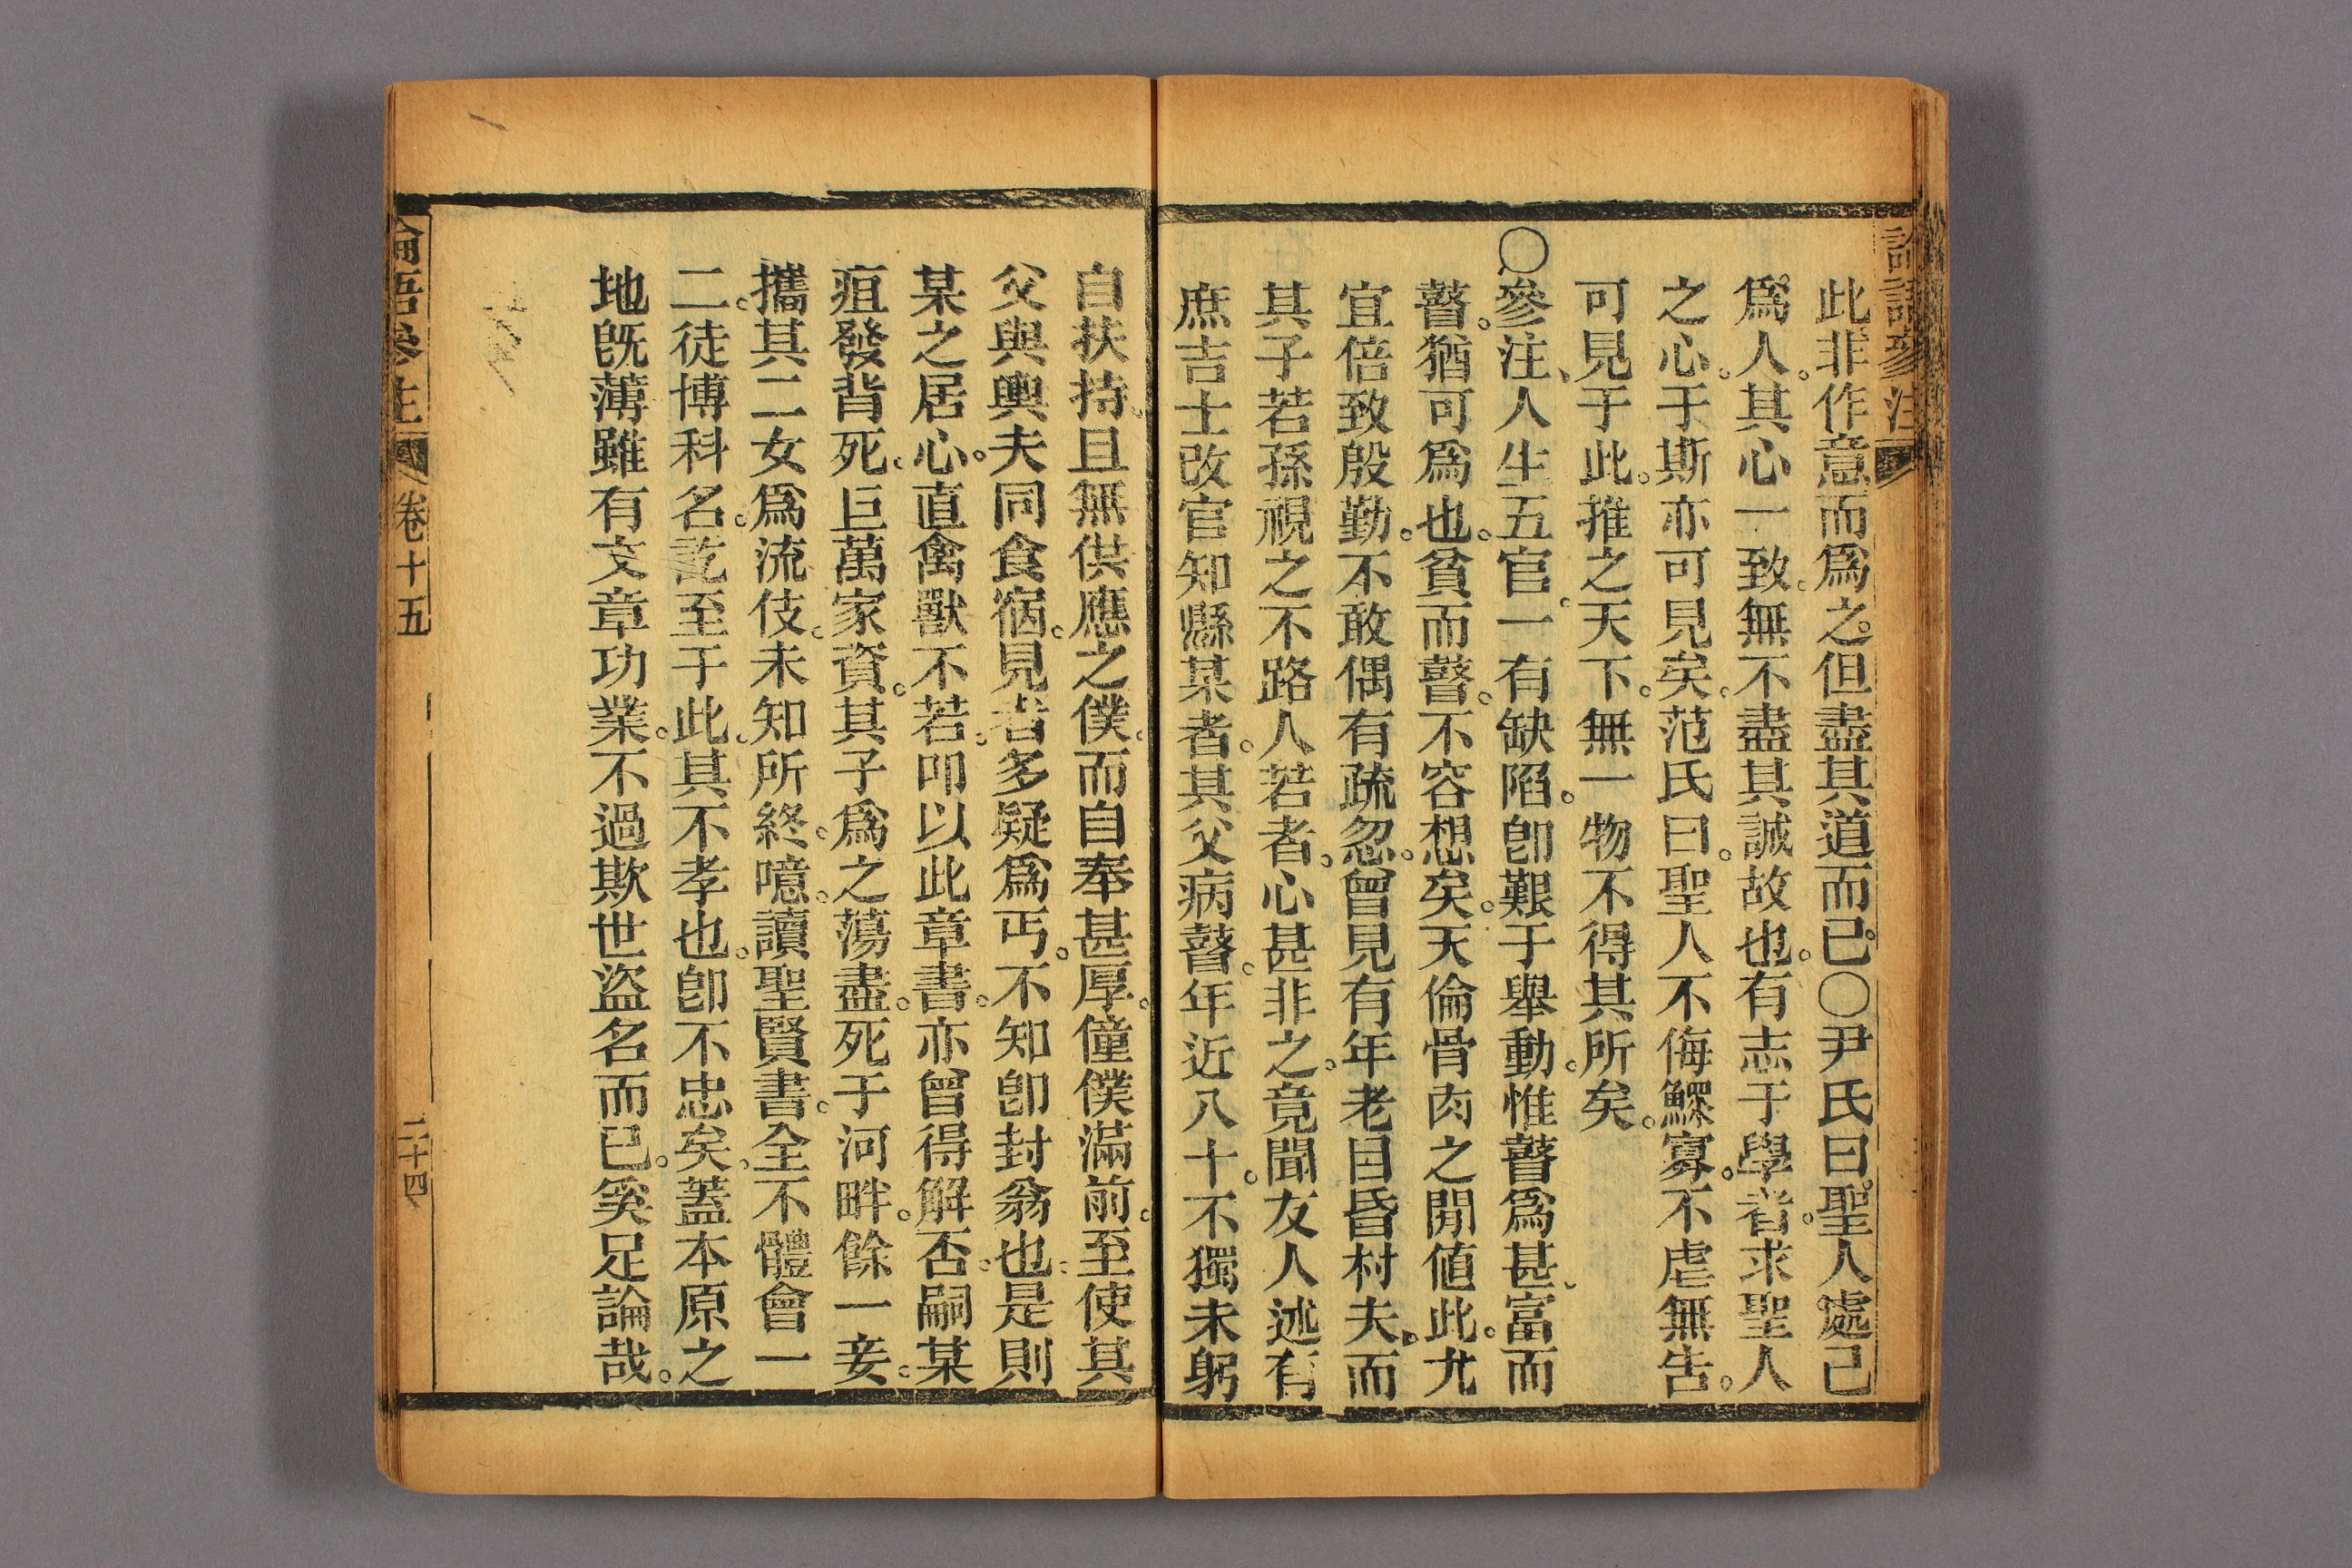 語參注
此非作意而爲之。但盡其道而已。○尹氏曰。聖人處己
爲人。其心一致。無不盡其誠故也。有志于學者。求聖人
之心。于斯亦可見矣。范氏曰。聖人不侮鰥寡。不虐無告。
可見于此。推之天下。無一物不得其所矣。
○參注、人生五官。一有缺陷。卽艱于舉動。惟瞽爲甚、富而
瞽。猶可爲也。貧而瞽。不容想矣。天倫骨肉之閒値此。尤
宜倍致殷勤。不敢偶有疏忽。曾見有年老目昏村夫。而
其子若孫視之不路人若者。心甚非之。竟聞友人述有
庶吉士改官知縣某者。其父病瞽。年近八十。不獨未躬
自扶持、且無供應之僕。而自奉甚厚。僮僕滿前。至使其
父與輿夫同食宿。見者多疑爲丐。不知卽封翁也。是則
某之居心。直禽獸不若。叩以此章書。亦曾得解否。嗣某
疽發背死、巨萬家資。其子爲之蕩盡。死于河畔。餘一妾。
攜其二女爲流伎。未知所終。噫。讀聖賢書。全不體會一
二。徒博科名。訖至于此。其不孝也。卽不忠矣。蓋本原之
地旣薄雖有文章功業。不過欺世盜名而已。奚足論哉。
論語參注 卷十五 二十四